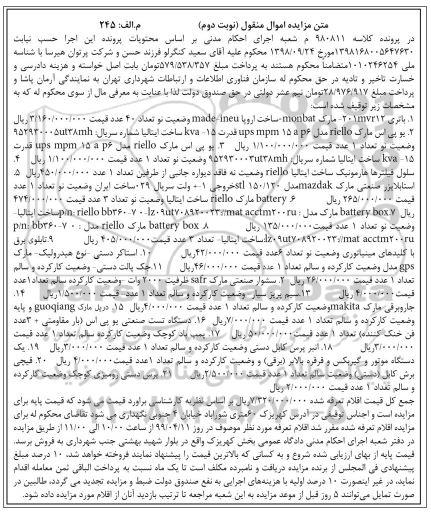 متن مزایده اموال منقول (نوبت دوم) م.الف: ۲۴۵
در پرونده کلاسه ۹۸۰۸۱۱ م شعبه اجرای احکام مدنی بر اساس محتویات پرونده این اجرا حسب نیابت
محکوم علیه آقای سعید کنگرلو فرزند حسن و شرکت پرتوان هیرسا با شناسه
ملی متضامنا محکوم هستند به پرداخت مبلغ تومان بابت اصل خواسته و هزینه دادرسی و
خسارت تاخیر و تادیه در حق محکوم له سازمان فناوری اطلاعات و ارتباطات شهرداری تهران به نمایندگی آرمان پاشا و
پرداخت مبلغ تومان نیم عشر دولتی در حق صندوق دولت لذا با عنایت به معرفی مال از سوی محکوم له که به
مشخصات زیر توقیف شده است:
۱. باتری مارک monbat ساخت اروپا made-ineu وضعیت نو تعداد ۴۰ عدد قیمت ۳/۱۶۰/۰۰۰/۰۰۰ ریال
۲. یو پی اس مارک riello مدل ups mpm ۱۵ a p۶ قدرت ۱۵ kva ساخت ایتالیا شماره سریال:
وضعیت نو تعداد ۱ عدد قیمت ۱/۱۰۰/۰۰۰/۰۰۰ ریال ۳. یو پی اس مارک riello مدل ups mpm ۱۵ a p۶ قدرت
۱۵ kva ساخت ایتالیا شماره سریال: وضعیت نو تعداد ۱ عدد قیمت ۱/۱۰۰/۰۰۰/۰۰۰ ریال ۴.
سلول فیلترها هارمونیک ساخت ایتالیا مارک riello وضعیت نو فاقد دیواره جانبی از طرفین تعداد ۱ عدد قیمت ۴۵۰/۰۰۰/۰۰۰ ریال ۵.
استابلایزر صنعتی مارک mazdak مدل ساخت ایران وضعیت نو تعداد ۱ عدد
قیمت ۲۶۵/۰۰۰/۰۰۰ ریال ۶. battery مارک riello ساخت ایتالیا وضعیت نو تعداد ۳ عدد قیمت
ریال ۷. battery box مارک مدل: ساخت ایتالیا-
وضعیت نو تعداد ۱ عدد قیمت ۱۳۵/۰۰۰/۰۰۰ ریال ۸. battery box مارک riello مدل:
ساخت ایتالیا- تعداد ۳ عدد قیمت ۴۰۵/۰۰۰/۰۰۰ ریال ۹. تابلوی برق
با کلیدهای مینیاتوری وضعیت نو تعداد ۶ عدد قیمت ۴۲/۰۰۰/۰۰۰ ریال ۱۰. استاکر دستی- نوع هیدرولیک- مارک
gps مدل وضعیت کارکرده و سالم تعداد ۱ عدد قیمت ۴۶/۰۰۰/۰۰۰ ریال ۱۱. جک پالت دستی- وضعیت کارکرده و سالم
تعداد ۱ عدد قیمت ۲۶/۰۰۰/۰۰۰ ریال ۱۲. سشوار صنعتی مارک safr ظرفیت ۲۰۰۰ وات -وضعیت کارکرده سالم تعداد ۱ عدد
قیمت ۴/۰۰۰/۰۰۰ ریال ۱۳. سیم پرینز سیار- وضعیت کارکرده و سالم تعداد ۱ عدد- قیمت ۱/۵۰۰/۰۰۰ ریال ۱۴.
جاروبرقی مارک makita وضعیت کارکرده و سالم تعداد ۱ عدد قیمت ۴/۰۰۰/۰۰۰ ریال ۱۵. دریل مارک guoqiang و پایه
وضعیت کارکرده و سالم تعداد ۱ عدد قیمت ۷/۰۰۰/۰۰۰ ریال ۱۶. دستگاه تست صنعتی یو پی اس (بار مقاومتی + ۳ عدد
فن خنک کننده) تعداد ۱ عدد قیمت ۵۰/۰۰۰/۰۰۰ ریال ۱۷. پمپ باد کوچک وضعیت کارکرده سالم تعداد ۱ عدد قیمت
۳/۰۰۰/۰۰۰ ریال ۱۸. انبر پرس کابل دستی وضعیت کارکرده و سالم تعداد ۱ عدد قیمت ۳/۰۰۰/۰۰۰ ریال ۱۹. یک
دستگاه موتور و گیربکس و قرقره بالابر (برقی) و وضعیت کارکرده و سالم تعداد ۱ عدد قیمت ۴/۰۰۰/۰۰۰ ریال ۲۰. قیچی
برش کابل (دستی) وضعیت سالم تعداد ۱ عدد قیمت ۲/۵۰۰/۰۰۰ ریال ۲۱. پرس دستی رومیزی کوچک وضعیت کارکرده
و سالم تعداد ۱ عدد قیمت ۲/۰۰۰/۰۰۰ ریال
جمع کل قیمت اقلام تعرفه شده ریال بر اساس نظریه کارشناسی برآورد قیمت می شود که قیمت پایه برای
مزایده است و اجناس توقیفی در آدرس کهریزک ۶۰ متری شورآباد خیابان ۴ جنوبی نگهداری می شود تقاضای محکوم له برای
مزایده اقلام تعرفه شده مقرر شد اقلام تعرفه مورد نظر موصوف در روز ۹۹/۰۴/۱۱ از ساعت ۱۰/۰۰ الی ۱۱/۰۰ از طریق مزایده
در دفتر شعبه اجرای احکام مدنی دادگاه عمومی بخش کهریزک واقع در بلوار شهید بهشتی جنب شهرداری به فروش برسد.
قیمت پایه از بهای ارزیابی شده شروع و به کسانی که بالاترین قیمت را پیشنهاد نمایند فروخته خواهد شد، ۱۰ درصد مبلغ
پیشنهادی فی المجلس از برنده مزایده دریافت و نامبرده مکلف است تا یک ماه نسبت به پرداخت الباقی ثمن معامله اقدام
نماید، در غیر اینصورت ۱۰ درصد اولیه با هزینه‌های اجرایی به نفع صندوق دولت ضبط و مزایده تجدید می گردد، طالبین در
صورت تمایل می‌توانند ۵ روز قبل از موعد مزایده به این شعبه مراجعه تا ترتیب بازدید آنان از اقلام مورد مزایده داده شود.